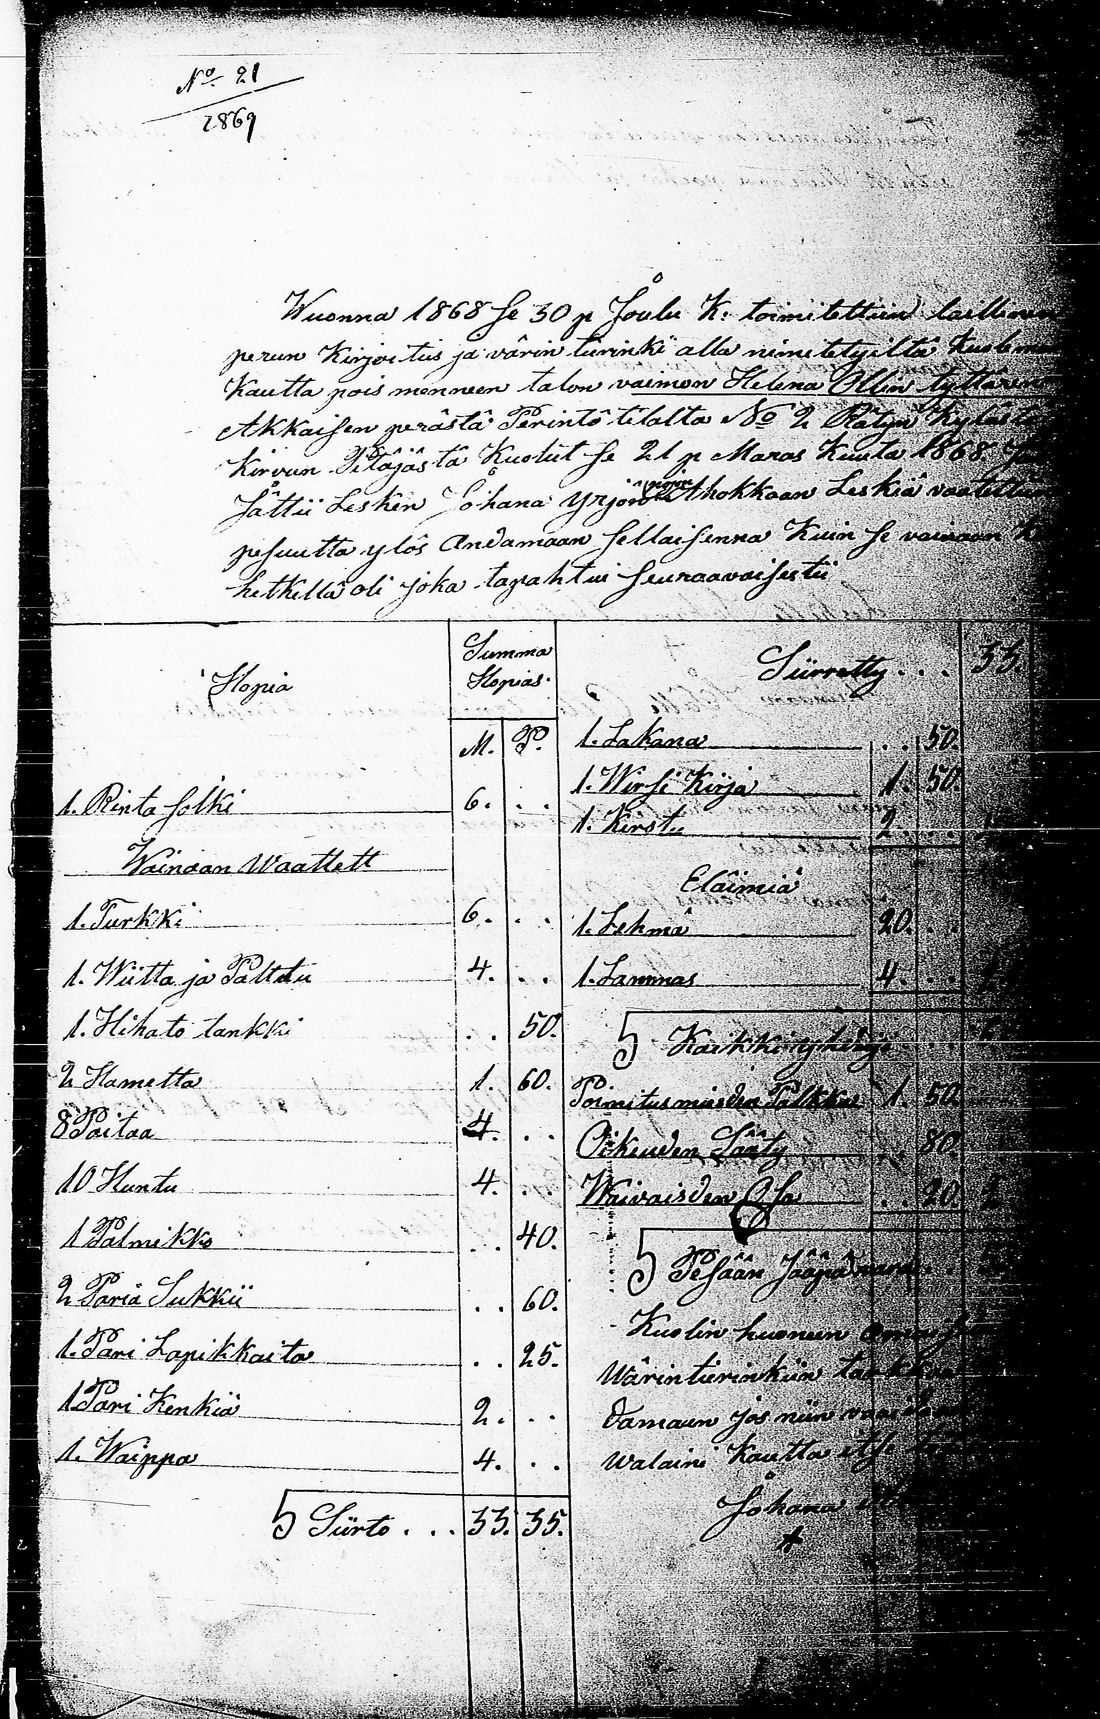 No 21
1869
Wuonna 1868 se 30 p Joulu K: toimitettiin laillinen
perun Kirjoitus ja värin tierinki alla nimitetyiltä Kuoleman
Kautta pois menneen talon vaimon Helena Ollin tyttären
Akkaisen perästä Perintö tilalta No 2 Rätyn Kylästä
Kirvun Pitäjästä Kuolut se 21 p Maras Kuuta 1868
Jätti Lesken Johana Yrjön Ahokkaan Leskiä
pesuutta ylös Andamaan sellaisenna Kuin se vainaan
hetkellä oli joka tapahtui seuraavaisesti
Hopia
Summa
Hopias.
M. P.
1. Rinta solki 6. . .
Wainaan Waattett
1. Turkki 6. . .
1. Wiitta ja Palttu 4. . .
1. Hihato tankki . . 50.
2 Hametta 1. 60.
8 Paitaa 4. . .
10 Huntu 4. . .
1 Palmikko . . 40.
2 Paria Sukkii . . 60.
1. Pari Lapikkaita . . 25.
1 Pari Kenkiä 2. . .
1. Waippa 4. . .
Siirto . . . 33. 35.
Siirretty . . . 33.
1. Lakana . . 50.
1. Wirsi Kirja 1. 50.
1. Kirstu 2. . .
Eläimiä
1. Lehmä 20. . .
1. Lammas 4. . .
Kaikki yhtensä
Toimitus miesden Palkka 1. 50.
Oikeuden Sääty . . 80.
Waivaisden Osa . . 20.
Pesään Jääpi
Kuolin huoneen
Wärintierinkiin
damaan jos niin
walaini Kautta
Johana